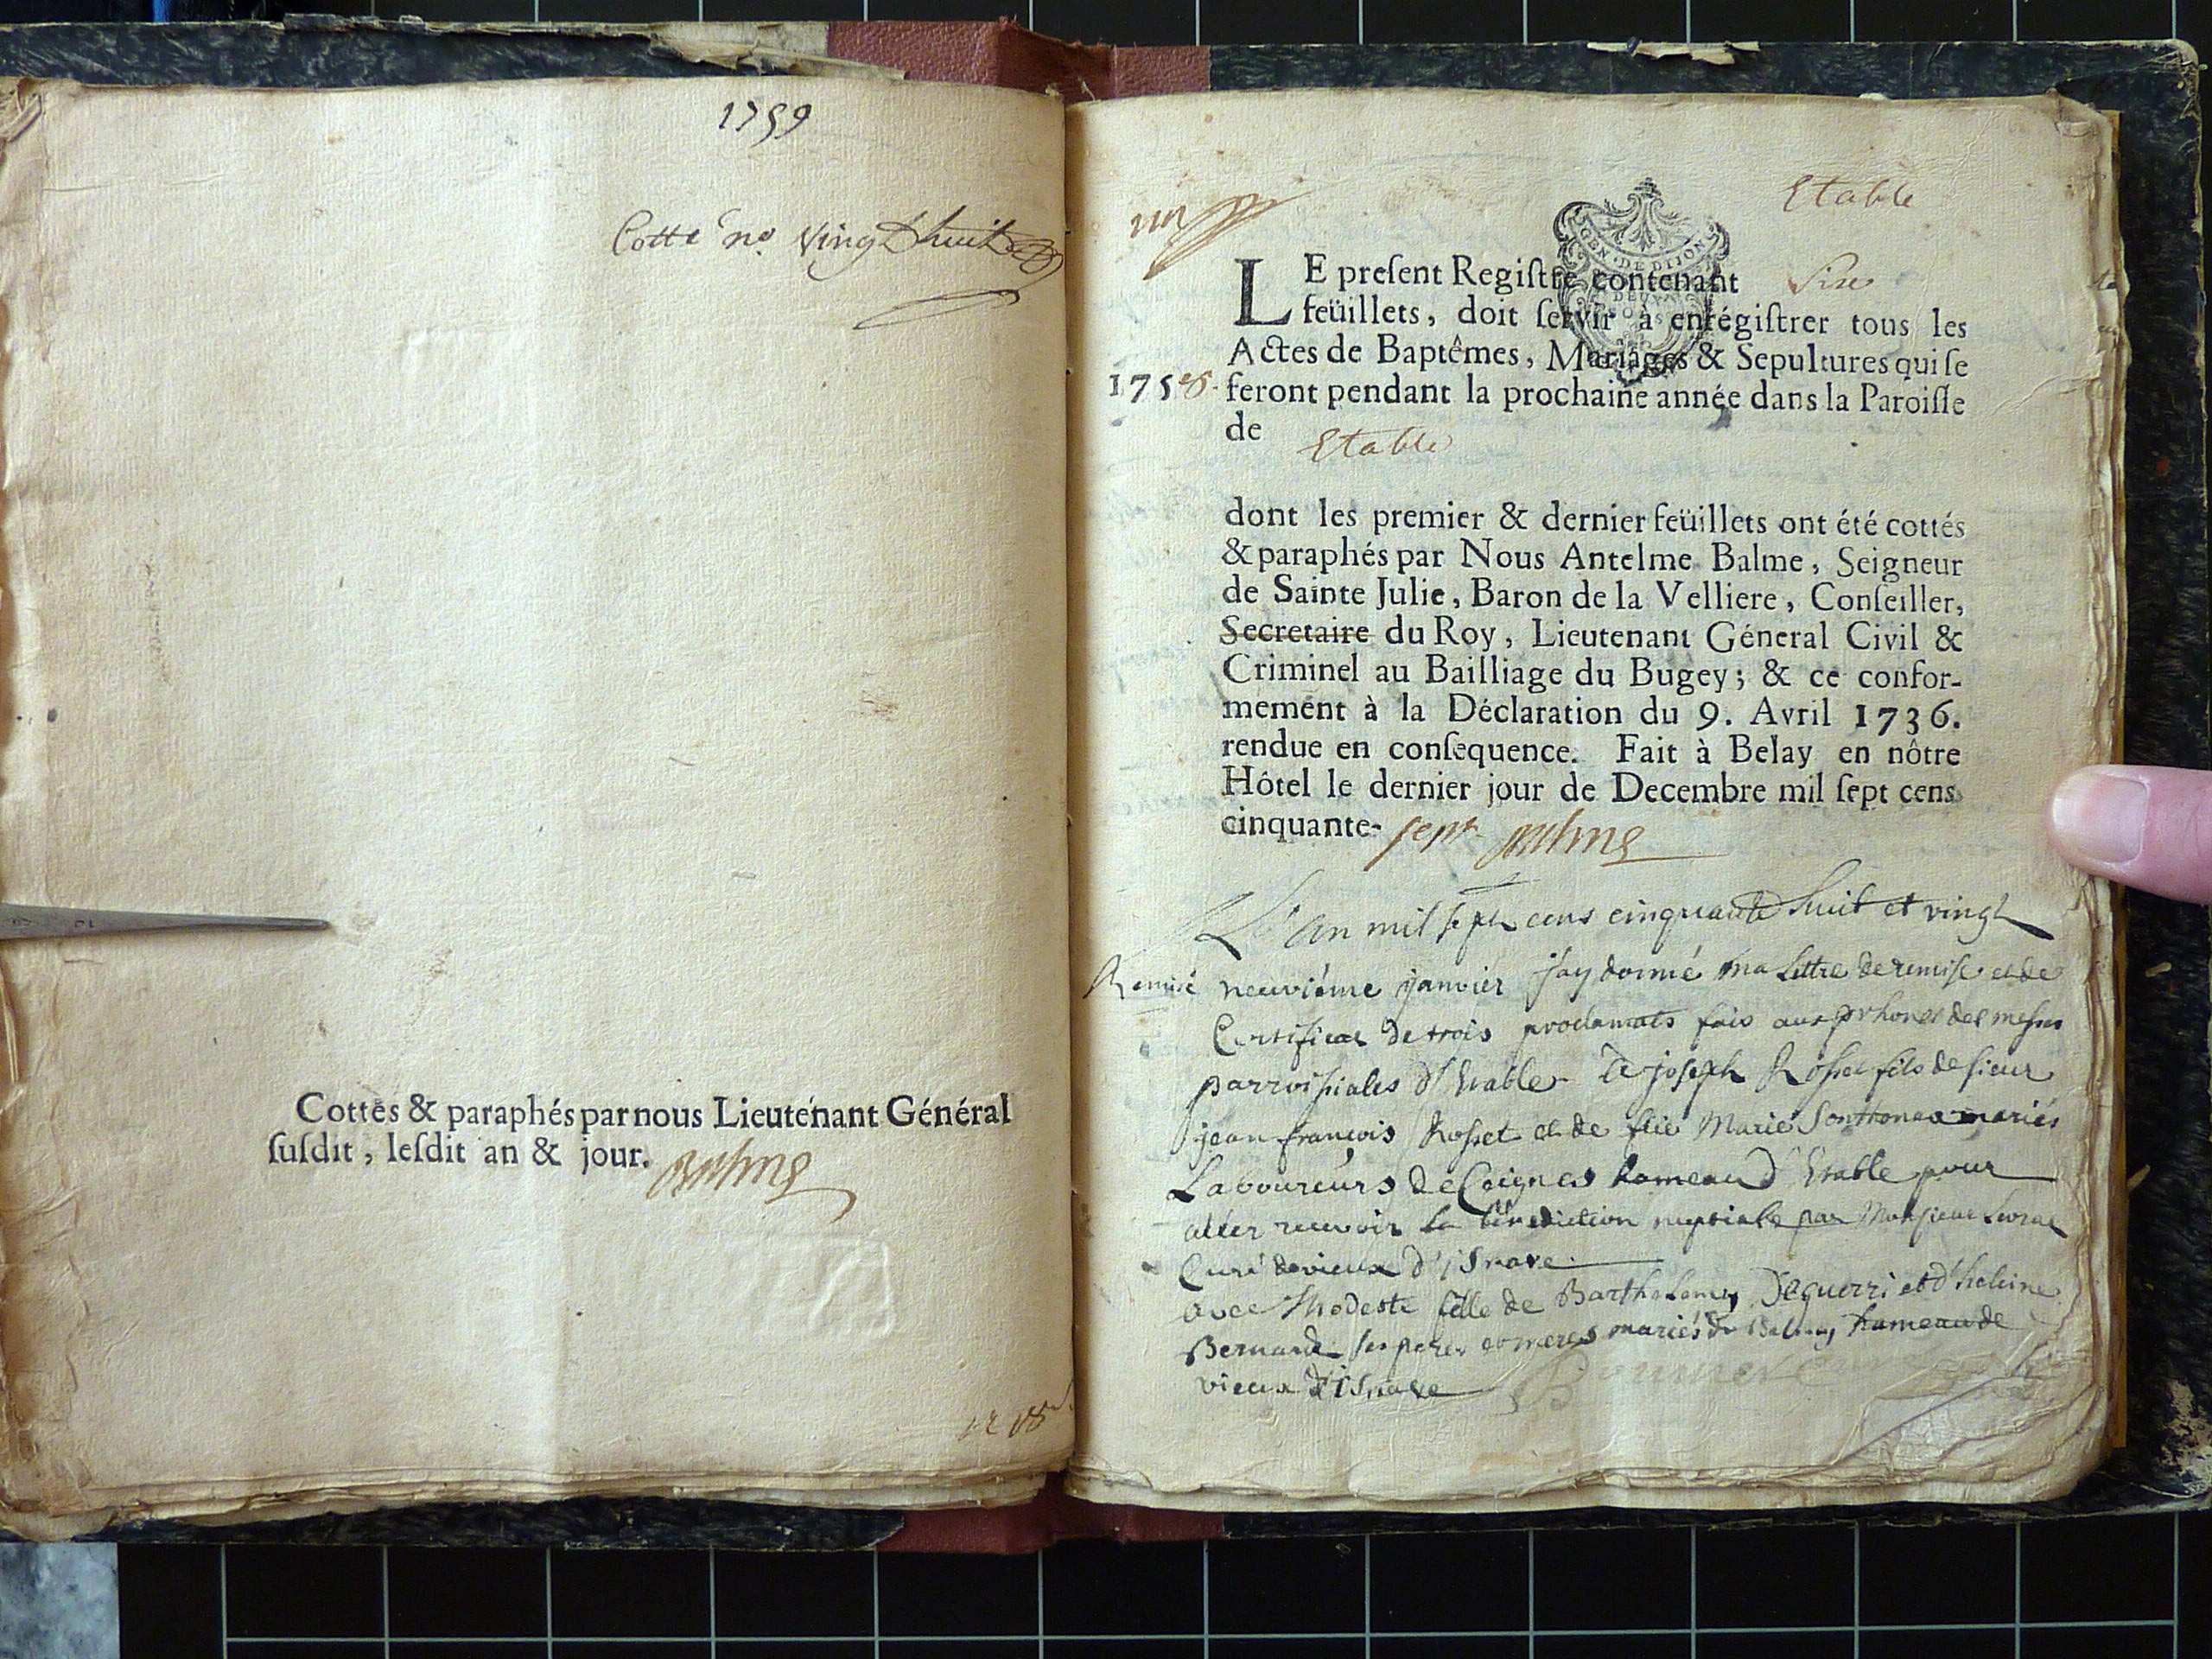 1759
Cotte no. vingt huit
Cottés & paraphés par nous Lieutenant Général
susdit, lesdit an & jour. Balme
Etable
GEN · DE DIJON
LE present Registre contenant Six
feüillets, doit servir à enrégistrer tous les
Actes de Baptêmes, Mariages & Sepultures qui se
1758. feront pendant la prochaine année dans la Paroisse
de Etable
dont les premier & dernier feüillets ont été cottés
& paraphés par Nous Antelme Balme, Seigneur
de Sainte Julie, Baron de la Velliere, Conseiller,
Secretaire du Roy, Lieutenant Géneral Civil &
Criminel au Bailliage du Bugey; & ce confor-
mement à la Déclaration du 9. Avril 1736.
rendue en consequence. Fait à Belay en nôtre
Hôtel le dernier jour de Decembre mil sept cens
cinquante- sept Balme
L'an mil sept cens cinquante huit et vingt
Remise neuviéme janvier j'ay donné ma Lettre de remise et de
Certificat de trois proclamats fais aux prhones des messes
parroissiales d'Etable de joseph Rosset fils de sieur
jean françois Rosset et de feüe Marie mariés
Laboureurs de Ceignes hameau d'Etable pour
aller recevoir la bénédiction nuptiale par Monsieur
Curé de vieux d'isnave
avec Modeste fille de Barthelemy et d'heleine
Bernard ses peres et meres mariés de hameau de
vieux d'isnave